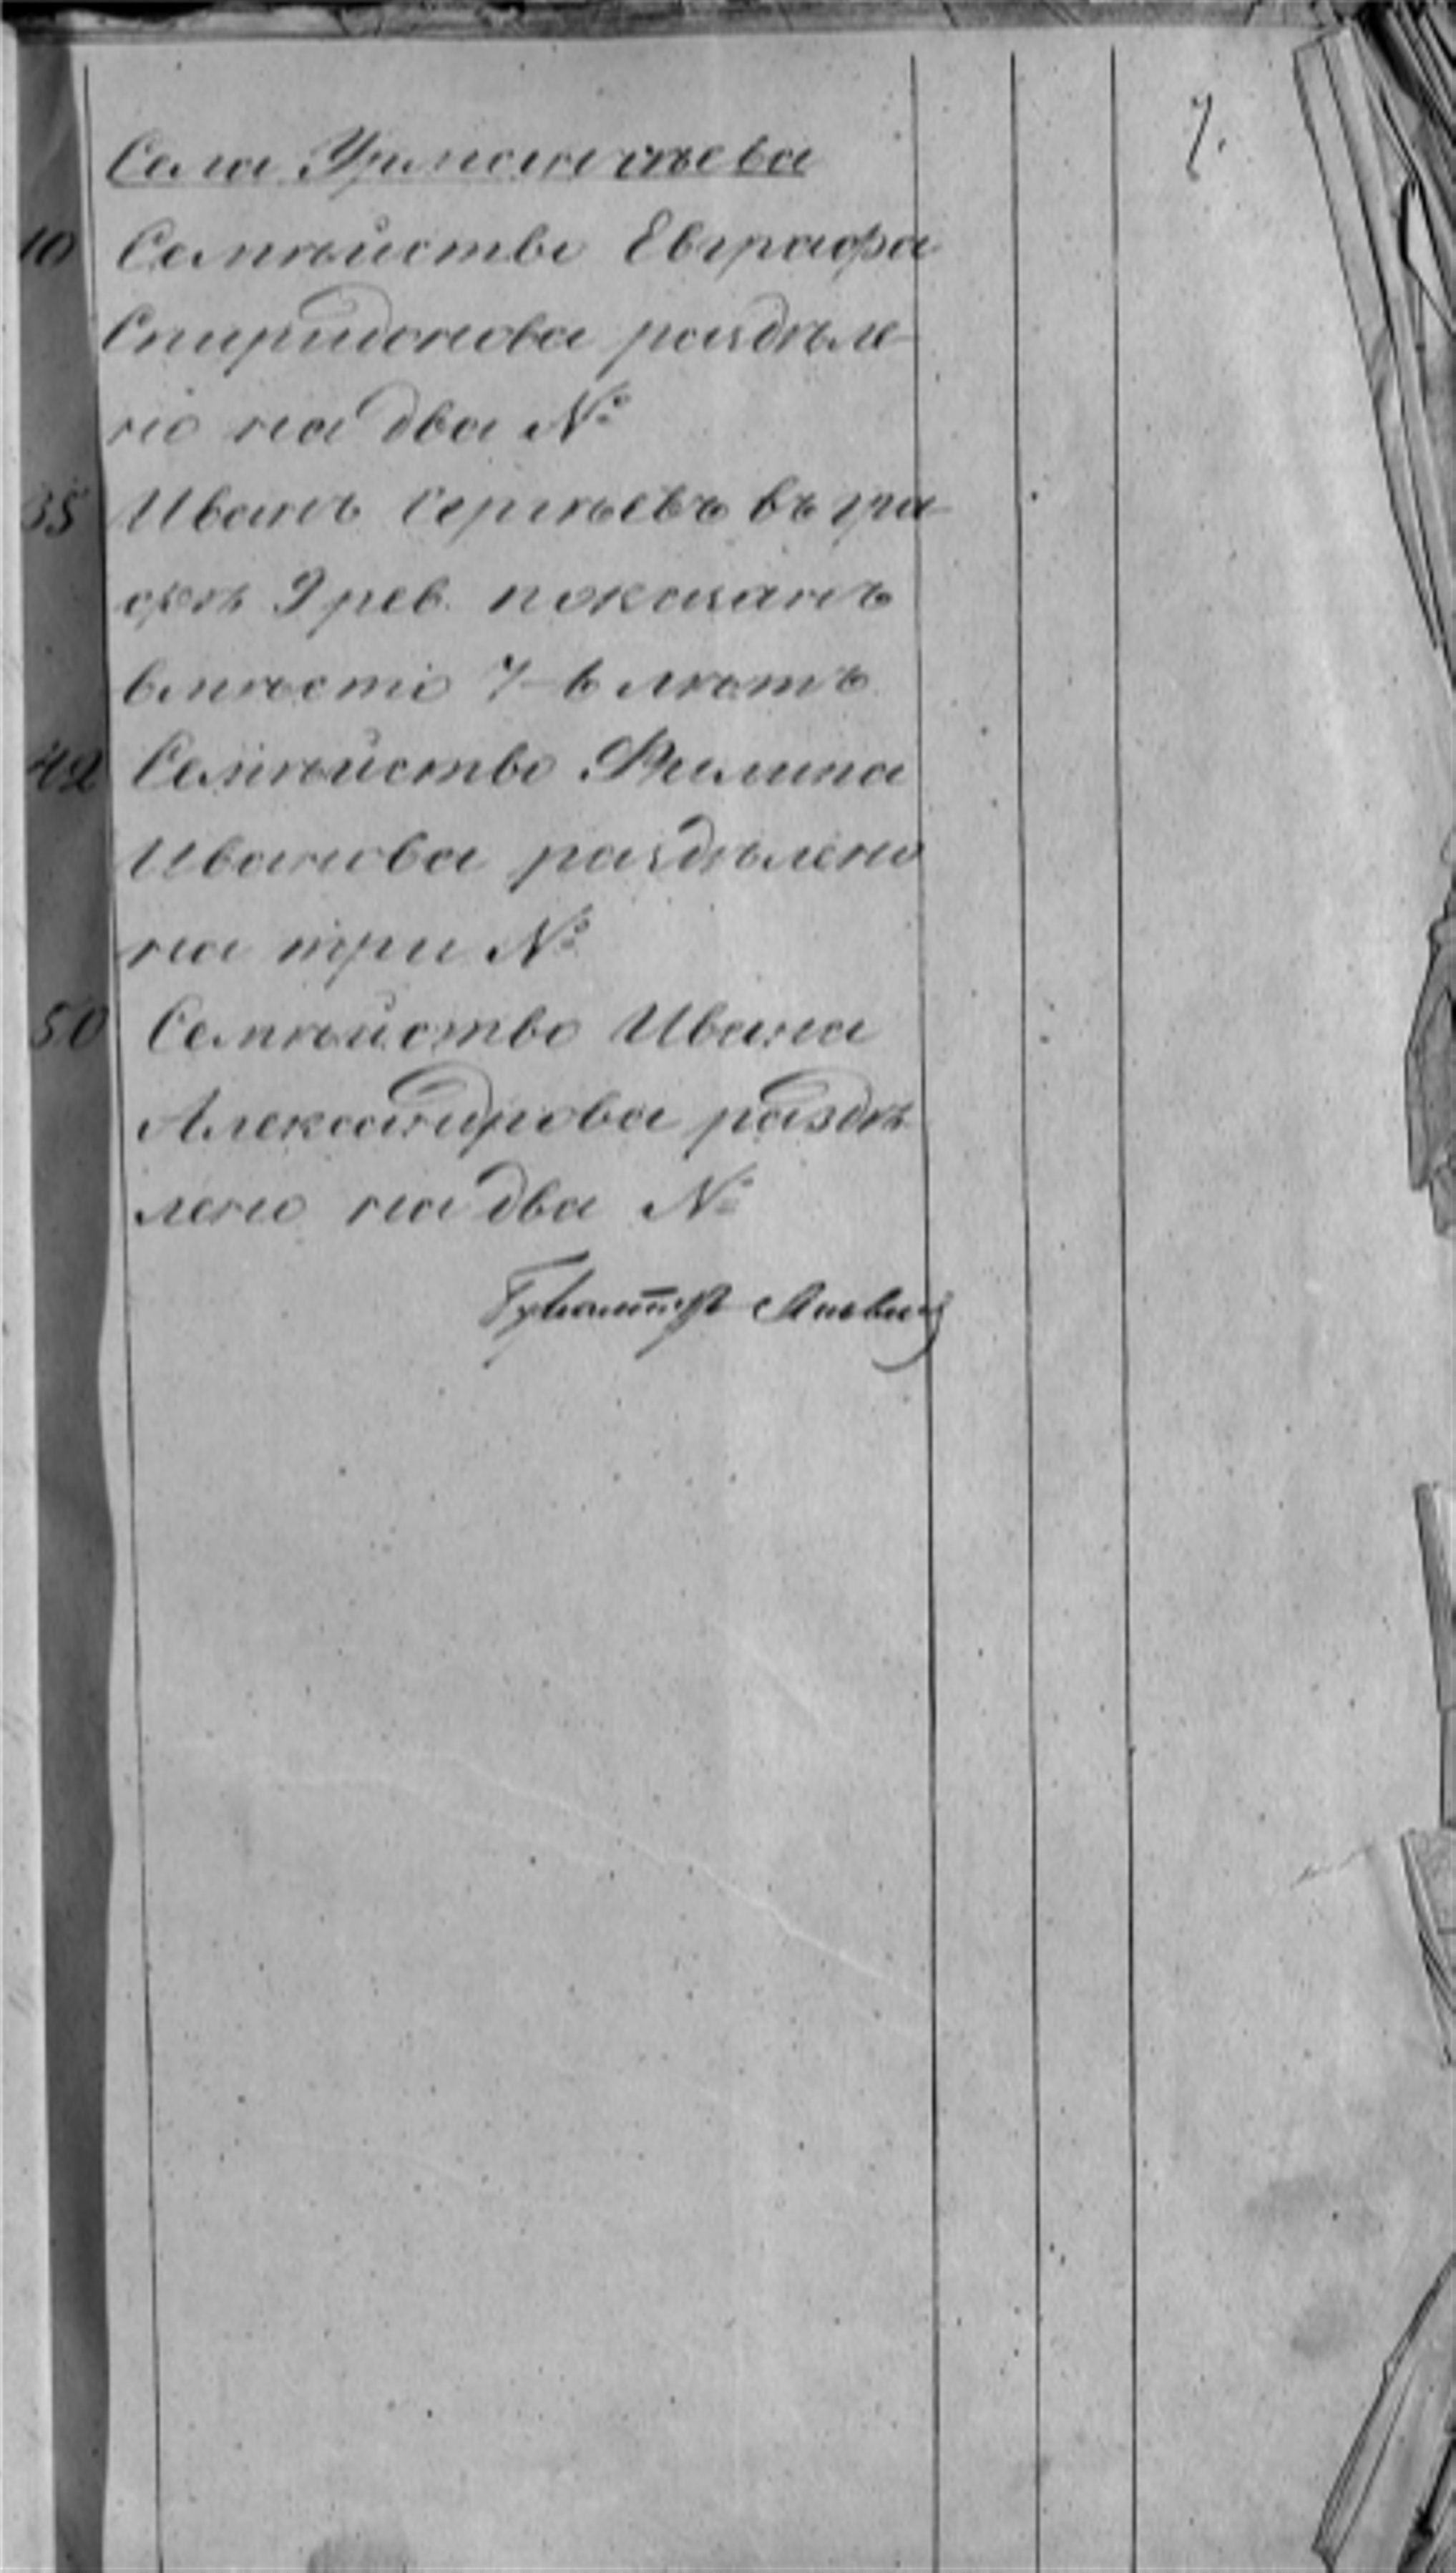 7.
Села
10 Семѣйство Евграфа
Спиридонова раздѣле-
но на два №
35 Иванъ Сергѣевъ въ гра-
фѣ 9 рев. показанъ
вмѣсто 7–6 лѣтъ
42 Семѣйство Филипа
Иванова раздѣлено
на три №
50 Семѣйство Ивана
Александрова раздѣ
лено на два №